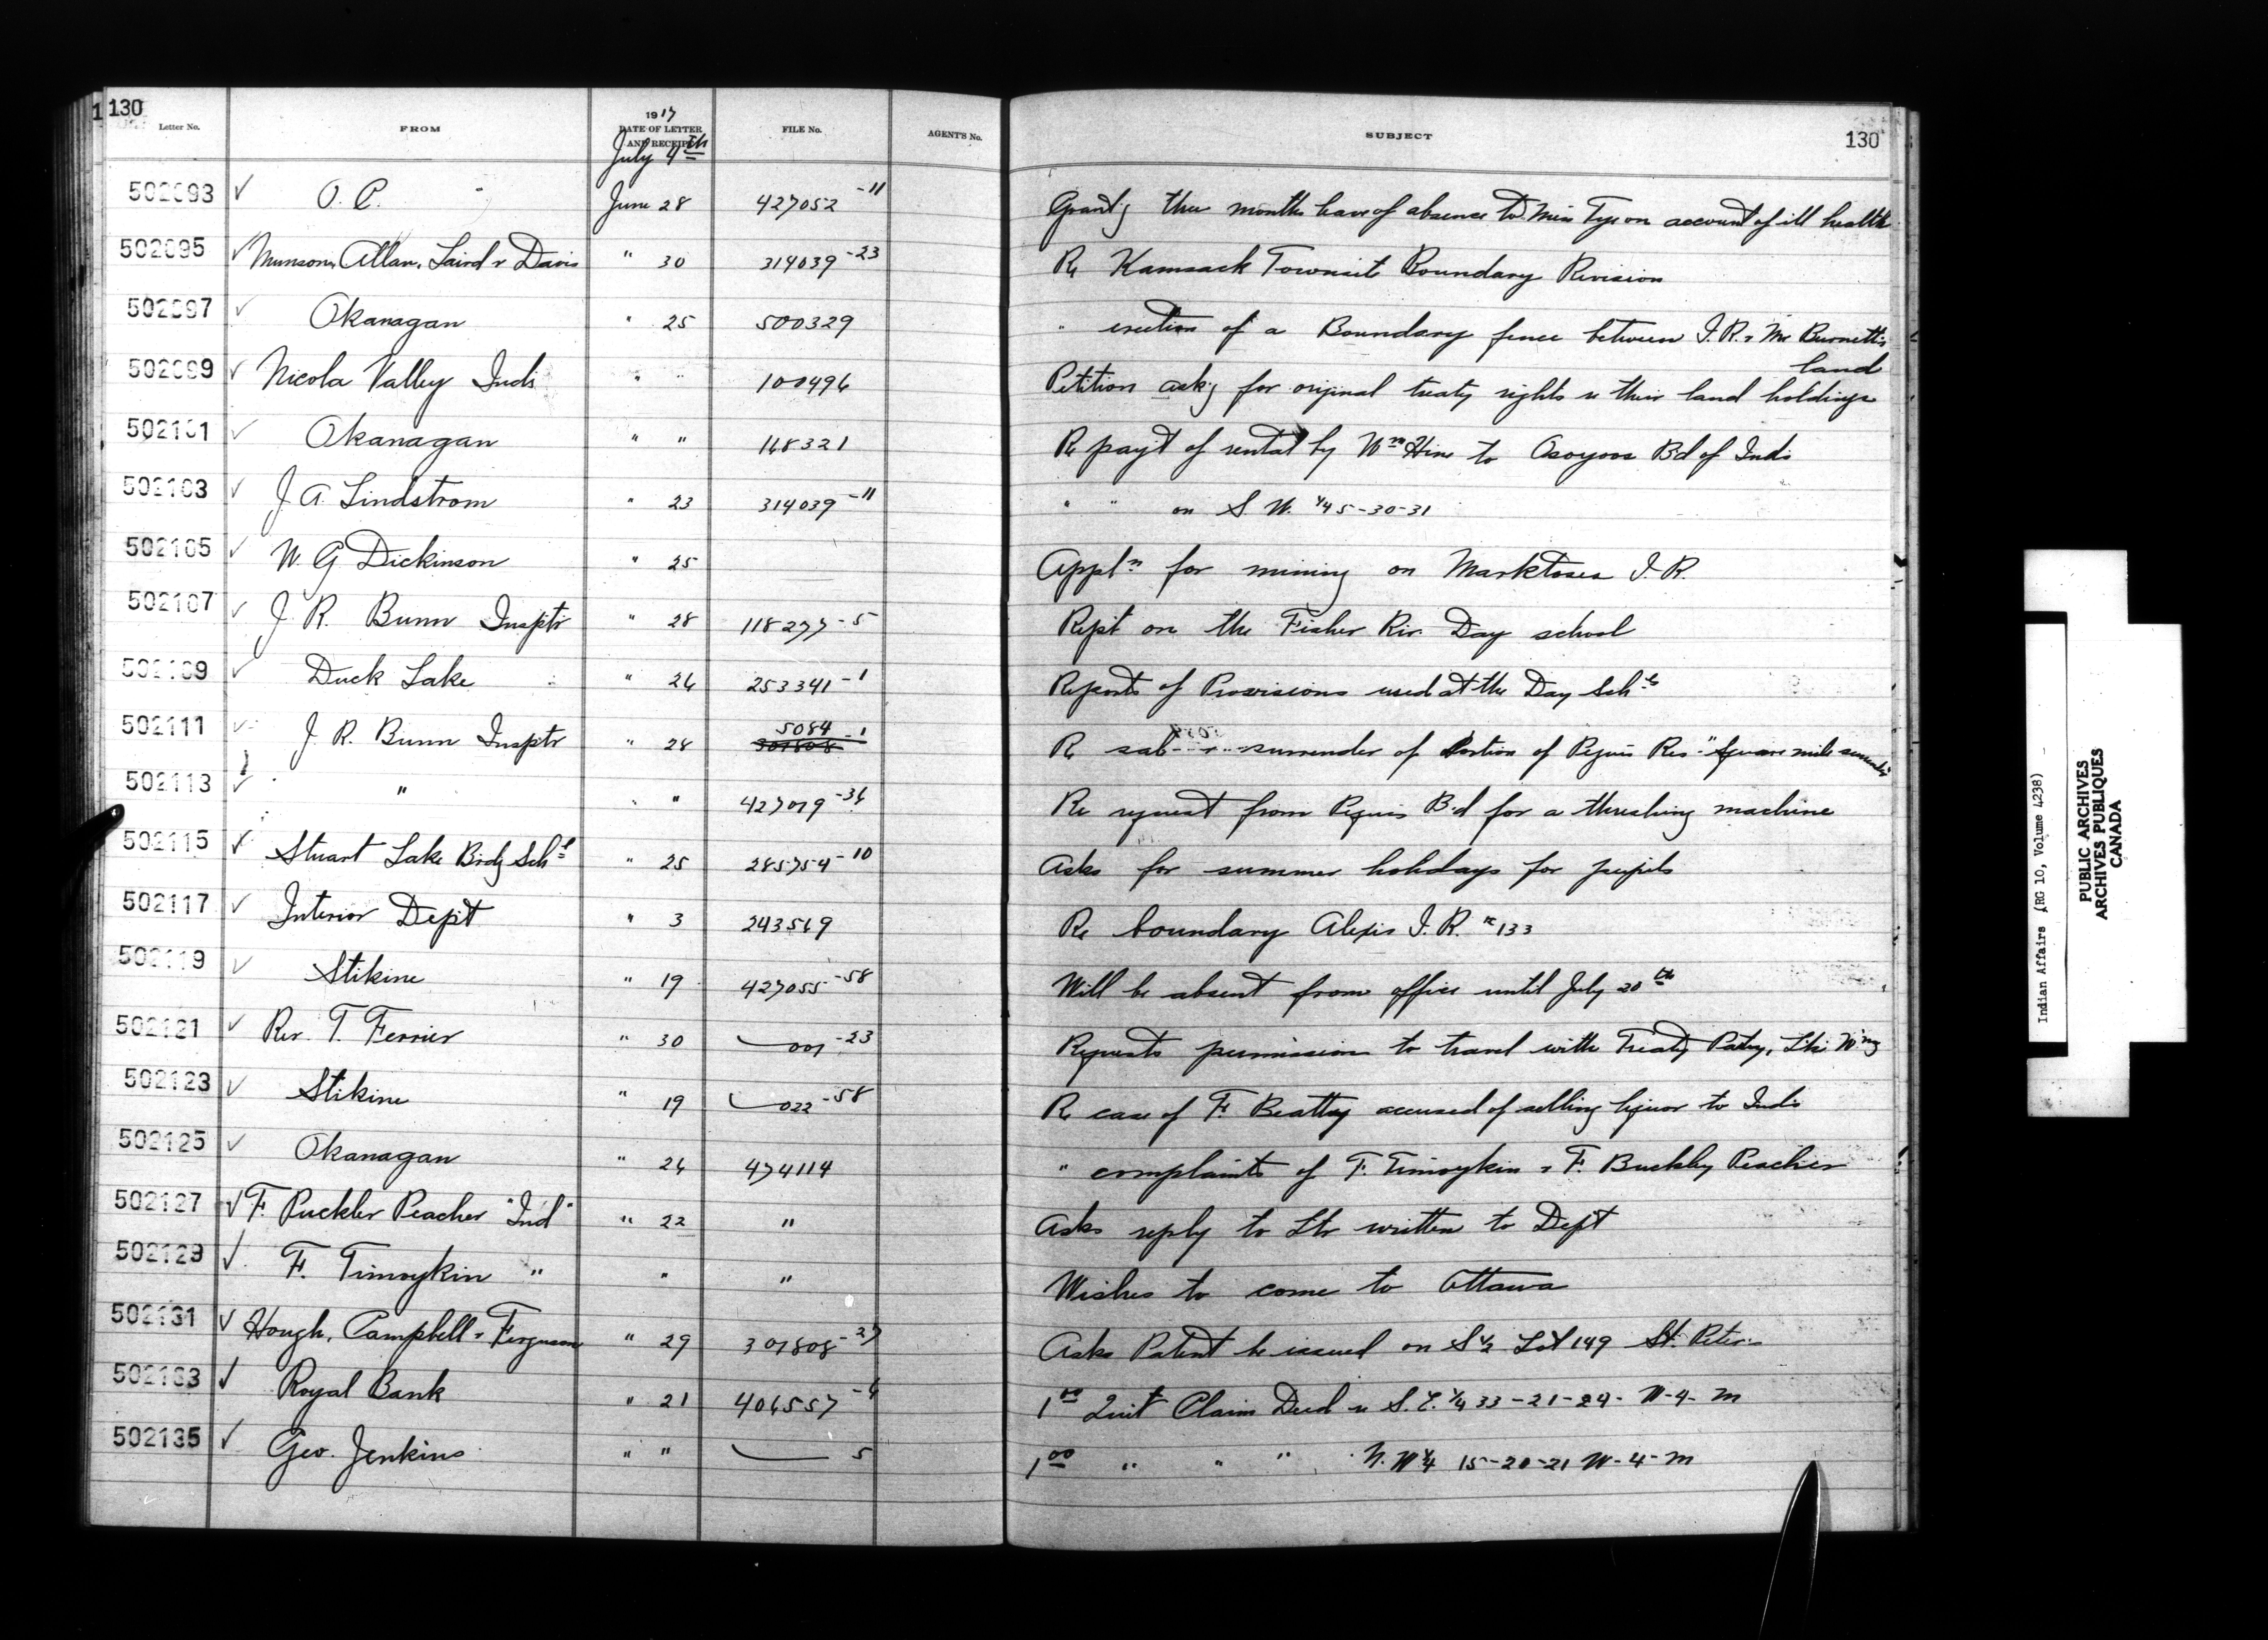 130
Letter No. FROM 1917 DATE OF LETTER AND RECEIPT FILE No. AGENT'S No. SUBJECT 130
July 4th
502093 ✓ O. C. June 28 427052-11 Grant'g three months leave of absence to Miss Tyson account of ill health
502095 ✓ Munson, Allan, Laird & Davis " 30 314039-23 Re Kamsack Townsite Boundary Revision
502097 ✓ Okanagan " 25 500329 " erection of a Boundary fence between I.R. & Mr Burnett's land
502099 ✓ Nicola Valley Inds " " 100496 Petition ask'g for original treaty rights re their land holdings
502101 ✓ Okanagan " " 168321 Re pay't of rental by Wm Hine to Osoyoos Bd of Inds
502103 ✓ J A Lindstrom " 23 314039-11 " " on S. W. 1/4 5-30-31
502105 ✓ W. G Dickinson " 25 Appl'n for mining on Marktosis I. R.
502107 ✓ J R. Bunn Insptr " 28 118277-5 Rep't on the Fisher Riv. Day school
502109 ✓ Duck Lake " 26 253341-1 Reports of Provisions used at the Day Schls
502111 ✓ J. R. Bunn Insptr " 28 5084-1 307808 Re sale surrender of Portion of Peguis Res "Square mile
502113 ✓ " " " 427079-36 Re request from Peguis Bd for a threshing machine
502115 ✓ Stuart Lake Brdg Schl " 25 285754-10 Asks for summer holidays for pupils
502117 ✓ Interior Dept " 3 243569 Re boundary Alexis I. R. # 133
502119 ✓ Stikine " 19 427055-58 Will be absent from office until July 20th
502121 ✓ Rev. T. Ferrier " 30 007-23 Requests permission to travel with Treaty Party, Lke W'peg
502123 ✓ Stikine " 19 022-58 Re case of F. Beatty accused of selling liquor to Inds
502125 ✓ Okanagan " 26 474114 " complaints of F. Timoykin & F. Buckley Peacher
502127 ✓ F. Puckler Peacher "Ind" " 22 " Asks reply to Ltr written to Dept
502129 ✓ F. Timoykin " " " Wishes to come to Ottawa
502131 ✓ Hough, Campbell & Ferguson " 29 307808-27 Asks Patent be issued on S 1/2 Lot 149 St. Peters
502133 ✓ Royal Bank " 21 406557-4 1 00 Quit Claim Deed re S. E. 1/4 33-21-24- W-4- M
502135 ✓ Geo. Jenkins " " 5 1 00 " " " N. W 1/4 15-20-21 W-4-M
Indian Affairs (RG 10, Volume 4238)
PUBLIC ARCHIVES
ARCHIVES PUBLIQUES
CANADA